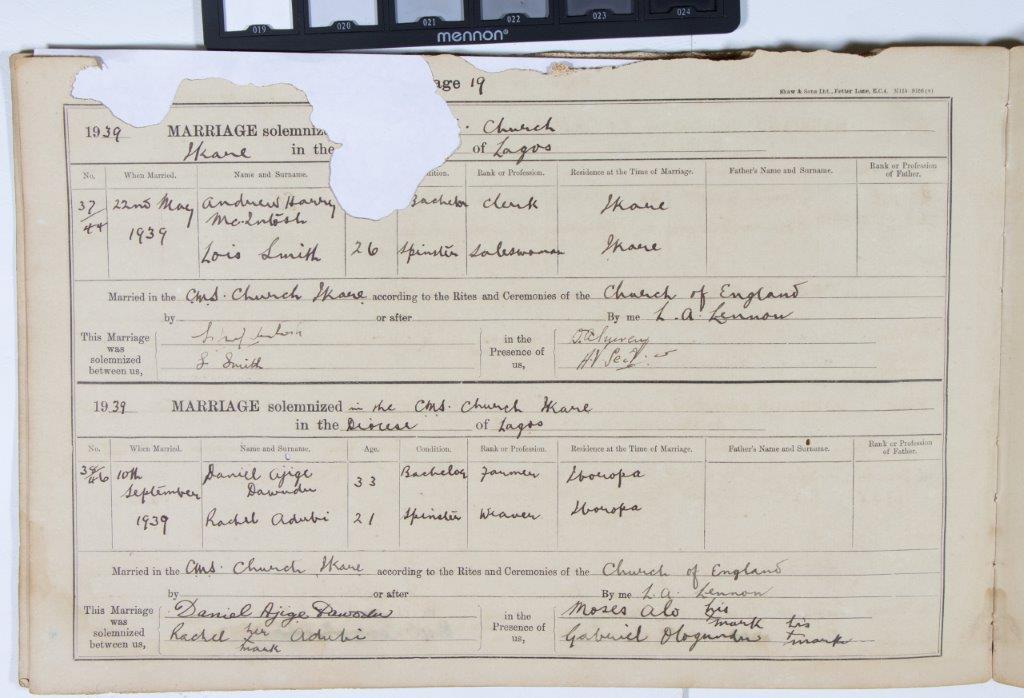 019 020 021 022 023 024
mennon®
age 19
Shaw & Sons Ltd., Fetter Lane, E.C.4.
1939 MARRIAGE solemnized Church
Ikare in the of Lagos
No. When Married. Name and Surname. dition. Rank or Profession. Residence at the Time of Marriage. Father's Name and Surname. Rank or Profession of Father.
37/44 22nd May Andrew Harry Bachelor Clerk Ikare
McIntosh
1939
Lois Smith 26 Spinster Saleswoman Ikare
Married in the CMS. Church Ikare according to the Rites and Ceremonies of the Church of England
by or after By me L. A. Lennon
This Marriage was solemnized between us, in the Presence of us,
L Smith
1939 MARRIAGE solemnized in the CMS. Church Ikare
in the Diocese of Lagos
No. When Married. Name and Surname. Age. Condition. Rank or Profession. Residence at the Time of Marriage. Father's Name and Surname. Rank or Profession of Father.
38/46 10th Daniel Ajige 33 Bachelor Farmer Iboropa
September Dawudu
1939 Rachel Adubi 21 Spinster Weaver Iboropa
Married in the CMS. Church Ikare according to the Rites and Ceremonies of the Church of England
by or after By me L. A. Lennon
This Marriage was solemnized between us, Daniel Ajige Dawodu in the Presence of us, Moses Alo his
mark
Rachel her Adubi Gabriel Ologundu his
mark mark